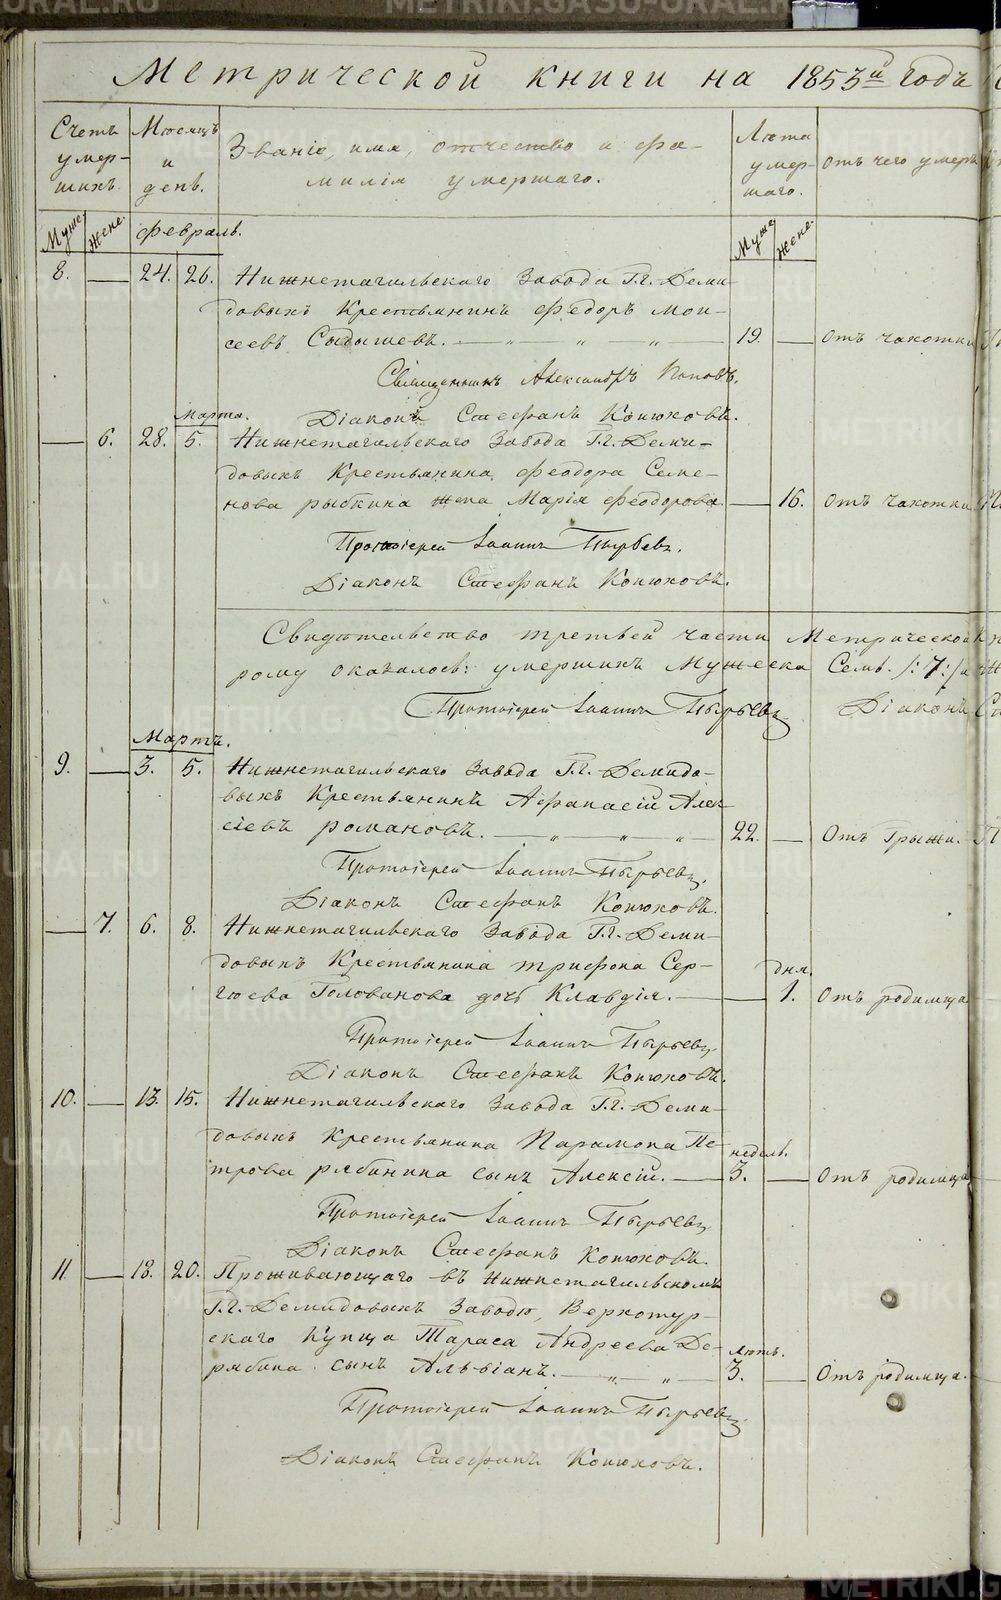 METRIKI.GASO-URAL.RU
Метрической книги на 1853й годъ
Счетъ умершихъ.
Мѣсяцъ и день.
Званіе, имя, отчество и фамилія умершаго.
Лѣта умершаго.
отъ чего умеръ
Муже. Жене.
Февраль.
Муже. Жене.
8. — 24. 26. Нижнетагильскаго Завода Г.г. Деми-
довыхъ Крестьянинъ Федоръ Мои-
сеевъ Сыдышевъ. — „ — „ — „ — 19. — Отъ чахотки
Священникъ Александръ Поповъ.
Діаконъ Стефанъ Конюховъ.
Марта.
— 6. 28. 5. Нижнетагильскаго Завода Г.г. Деми-
довыхъ Крестьянина Феодора Семе-
нова рыбкина жена Марія Феодорова — 16. Отъ чахотки
Протоіерей Іоаннъ Пырьевъ.
Діаконъ Стефанъ Конюховъ.
Свидѣтельство третьей части Метрической
рому оказалось: умершихъ Мужеска Семь. /:7:/
Протоіерей Іоаннъ Пырьевъ Діаконъ
Мартъ.
9. — 3. 5. Нижнетагильскаго Завода Г.г. Демидо-
выхъ Крестьянинъ Афанасій Алек-
сіевъ романовъ. — „ — „ — „ — 22. — Отъ Грыжи.
Протоіерей Іоаннъ Пырьевъ.
Діаконъ Стефанъ Конюховъ.
— 7. 6. 8. Нижнетагильскаго Завода Г.г. Деми-
довыхъ Крестьянина трифона Сер-
гѣева Голованова дочь Клавдія. — — дня. 1. Отъ родимца
Протоіерей Іоаннъ Пырьевъ
Діаконъ Стефанъ Конюховъ.
10. — 13. 15. Нижнетагильскаго Завода Г.г. Деми-
довыхъ Крестьянина Парамона Пе-
трова рябинина сынъ Алексій. — недель. 3. — Отъ родимца
Протоіерей Іоаннъ Пырьевъ
Діаконъ Стефанъ Конюховъ.
11 — 18. 20. Проживающаго въ Нижнетагильскомъ
Г.г. Демидовыхъ Заводѣ, Верхотур-
скаго Купца Тараса Андреева Де-
рябина сынъ Альвіанъ. — „ „ — лѣтъ. 3. — Отъ родимца.
Протоіерей Іоаннъ Пырьевъ
Діаконъ Стефанъ Конюховъ.